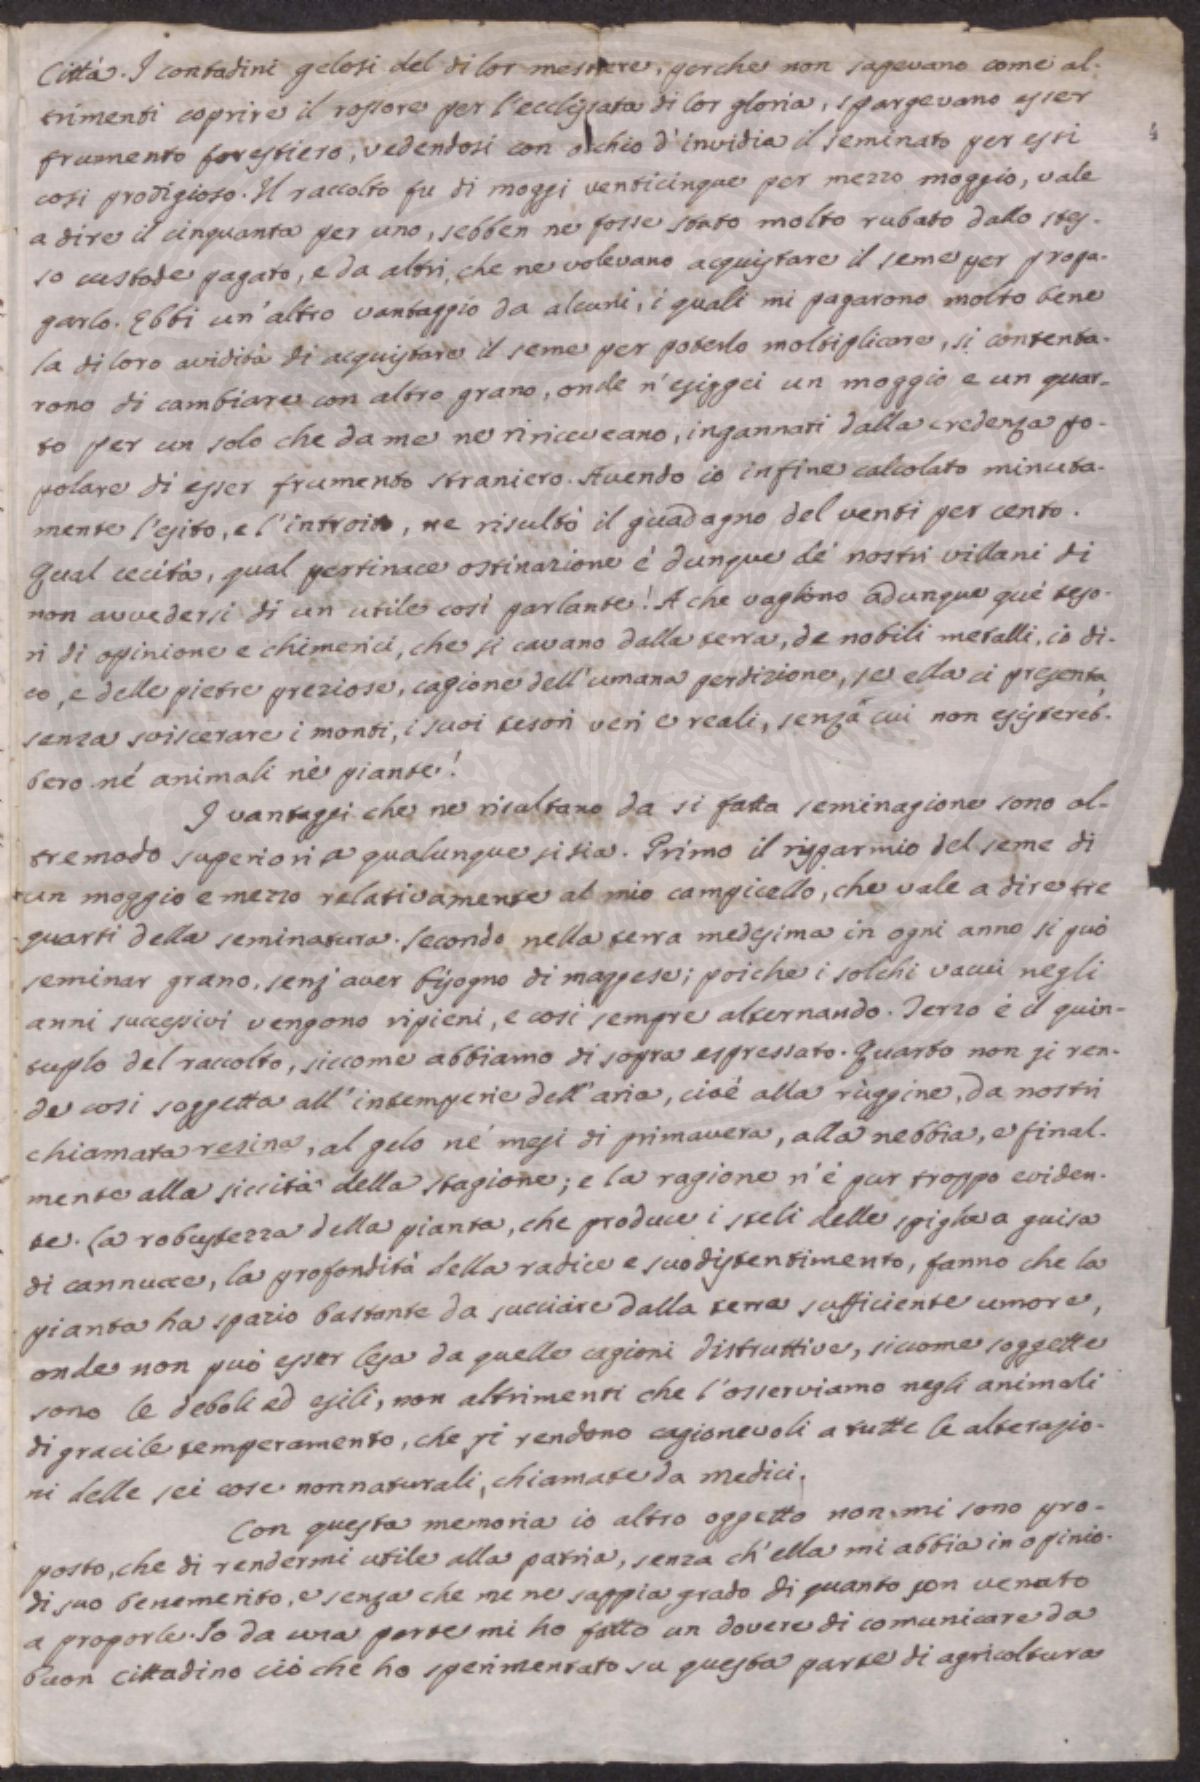 Città. I contadini gelosi del di lor mestiere, perche non sapevano come al-
trimenti coprire il rossore per l'ecclissata di lor gloria, spargevano esser
frumento forestiero, vedendosi con occhio d'invidia il seminato per essi
così prodigioso. Il raccolto fu di moggi venticinque per mezzo moggio, vale
a dire il cinquanta per uno, sebben ne fosse stato molto rubato dallo stes-
so custode pagato, e da altri, che ne volevano acquistare il seme per propa-
garlo. Ebbi un'altro vantaggio da alcuni, i quali mi pagarono molto bene
la di loro avidità di acquistare il seme per poterlo moltiplicare, si contenta-
rono di cambiare con altro grano, onde n'esiggei un moggio e un quar-
to per un solo che da me ne ririceveano, ingannati dalla credenza po-
polare di esser frumento straniero. Avendo io infine calcolato minuta-
mente l'esito, e l'introito, ne risultò il guadagno del venti per cento.
Qual cecità, qual pertinace ostinazione è dunque de' nostri villani di
non avvedersi di un utile così parlante! A che vagliono adunque que' teso-
ri di opinione e chimerici, che si cavano dalla terra, de nobili metalli, io di-
co, e delle pietre preziose, cagione dell'umana perdizione, se ella ci presenta,
senza sviscerare i monti, i suoi tesori veri e reali, senza cui non esistereb-
bero né animali nè piante!
I vantaggi che ne risultano da si fatta seminagione sono ol-
tremodo superiori a qualunque si sia. Primo il risparmio del seme di
un moggio e mezzo relativamente al mio campicello, che vale a dire tre
quarti della seminatura. Secondo nella terra medesima in ogni anno si può
seminar grano, senz'aver bisogno di maggese; poiche i solchi vacui negli
anni successivi vengono ripieni, e così sempre alternando. Terzo è il quin-
tuplo del raccolto, siccome abbiamo di sopra espressato. Quarto non si ren-
de così soggetta all'intemperie dell'aria, cioè alla rùggine, da nostri
chiamata resina, al gelo né mesi di primavera, alla nebbia, e final-
mente alla siccità della stagione; e la ragione n'è pur troppo eviden-
te. La robustezza della pianta, che produce i steli delle spighe a guisa
di cannucce, la profondità della radice e suo distentimento, fanno che la
pianta ha spazio bastante da succiare dalla terra sufficiente umore,
onde non può esser lesa da quelle cagioni distruttive, siccome soggette
sono le deboli ed esili, non altrimenti che l'osserviamo negli animali
di gracile temperamento, che si rendono cagionevoli a tutte le alterazio-
ni delle sei cose nonnaturali, chiamate da medici.
Con questa memoria io altro oggetto non mi sono pro-
posto, che di rendermi utile alla patria, senza ch'ella mi abbia in opinio-
di suo benemerito, e senza che me ne sappia grado di quanto son venuto
a proporle. Io da una parte mi ho fatto un dovere di comunicare da
buon cittadino ciò che ho sperimentato su questa parte di agricoltura